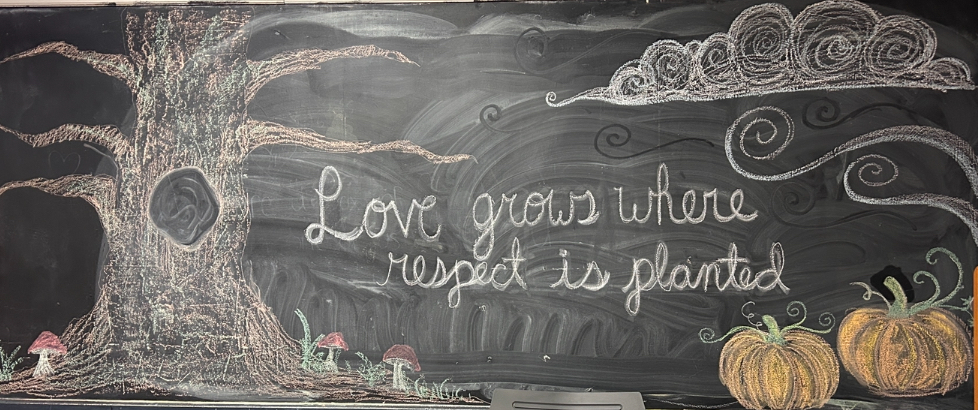 Love grows where
respect is planted